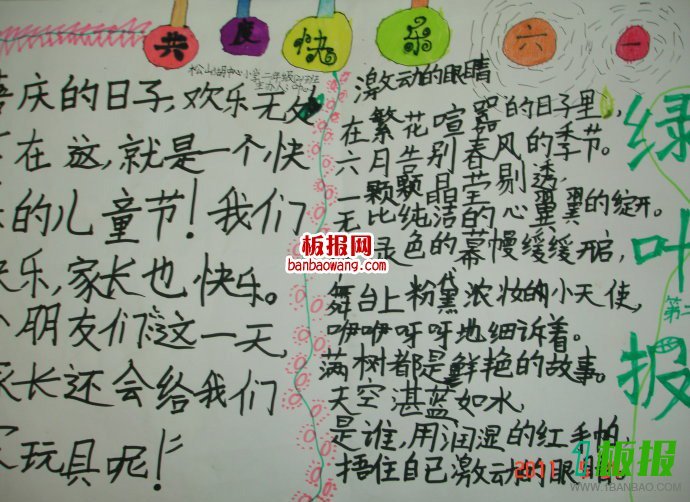 共度快乐六一
松山湖中心小学二年级(2)班
主办人:
庆的日子,欢乐无处
在这,就是一个快
的儿童节!我们
快乐,家长也快乐。
朋友们这一天,
家长还会给我们
玩具呢!
激动的眼睛
在繁花喧嚣的日子里,
六月告别春风的季节。
一颗颗晶莹剔透,
无比纯洁的心翼翼的绽开。
绿色的幕幔缓缓开启,
舞台上粉黛浓妆的小天使,
咿咿呀呀地细诉着。
满树都是鲜艳的故事。
天空湛蓝如水,
是谁,用润湿的红手帕,
捂住自己激动的眼睛。
绿叶报
第二
板报网
banbaowang.com
2011
板报
WWW.1BANBAO.COM